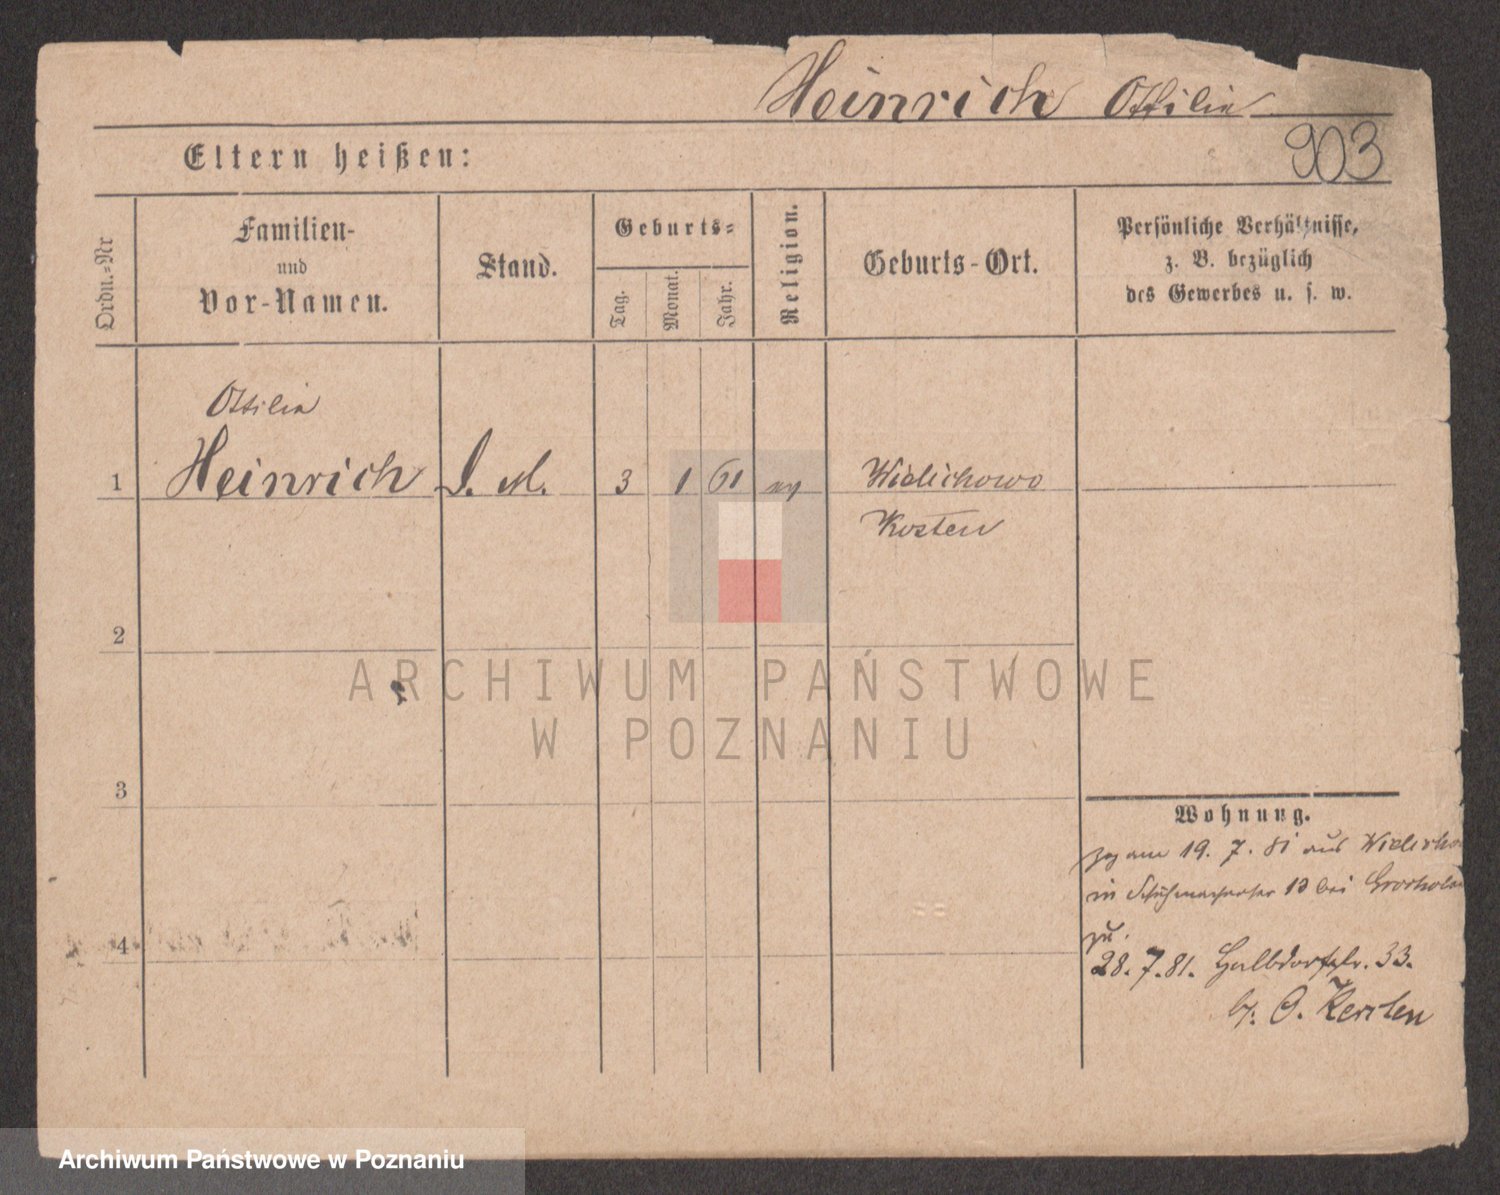 Heinrich Ottilie
903
Eltern heißen:
Ordn.-Nr
Familien-
und
Vor-Namen.
Stand.
Geburts-
Tag.
Monat.
Jahr.
Religion.
Geburts-Ort.
Persönliche Verhältnisse,
z. B. bezüglich
des Gewerbes u. s. w.
Ottilie
1 Heinrich D. M. 3 1 61 Wielichowo
Kosten
2
3
4
Wohnung.
zog am 19. 7. 81 aus Wielicho
in Schuhmacherstr 13 bei
zu.
28. 7. 81. Halbdorfstr. 33.
b/. O. Kersten
ARCHIWUM PAŃSTWOWE
W POZNANIU
Archiwum Państwowe w Poznaniu